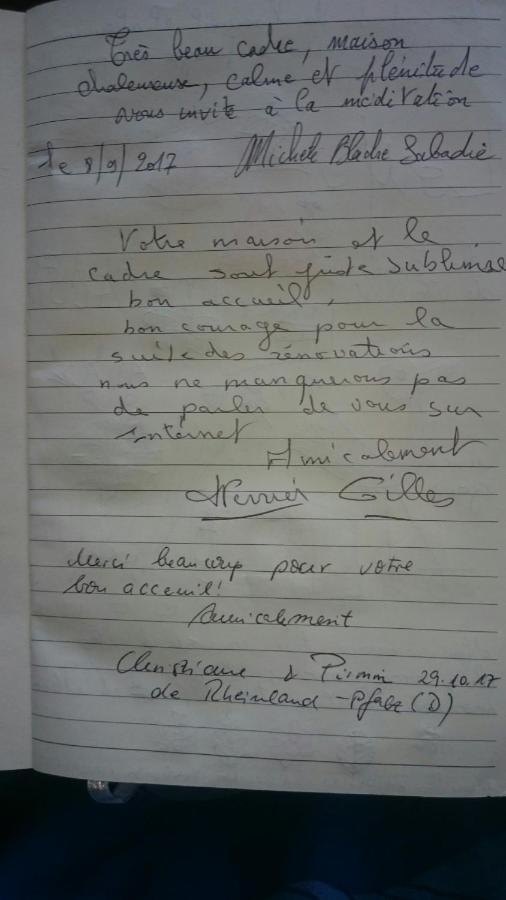 Très beau cadre, maison
chaleureuse, calme et plénitude
vous invite à la méditation
le 8/9/2017 Michèle
Votre maison et le
cadre sont juste sublimse
bon accueil,
bon courage pour la
suite des rénovations
nous ne manquerons pas
de parler de vous sur
Internet
Amicalement
Gilles
Merci beaucoup pour votre
bon acceuil!
Amicalement
Christiane & Pirmin 29.10.17
de Rheinland-Pfalz (D)